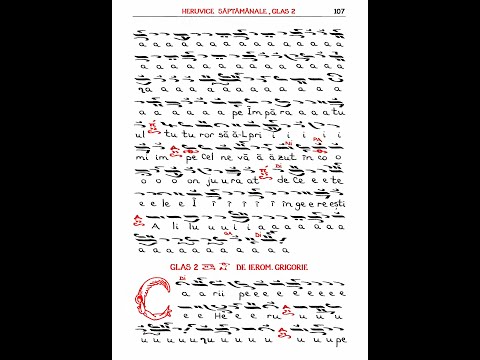 HERUVICE SĂPTĂMÂNALE, GLAS 2 107
a a a a a a a a a a a a
a a a a a a a a a a a a
ra a a a a a a a a a a
a a a a a pe Împă ra a a a tu
ul tu tu ror să ă-L pri i i i i i
mi im pe Cel ne vă ă ă zut în co o
o o o on ju u ra at de Ce e e te
e e le e Î î î î î în ge e re ești
A li lu u u i i a a a a a a
a a a a a a a a a
GLAS 2 DE IEROM. GRIGORIE.
C a a rii pe e e e e e e
e e He e ru u u u u
u u u u ru u u u u pe